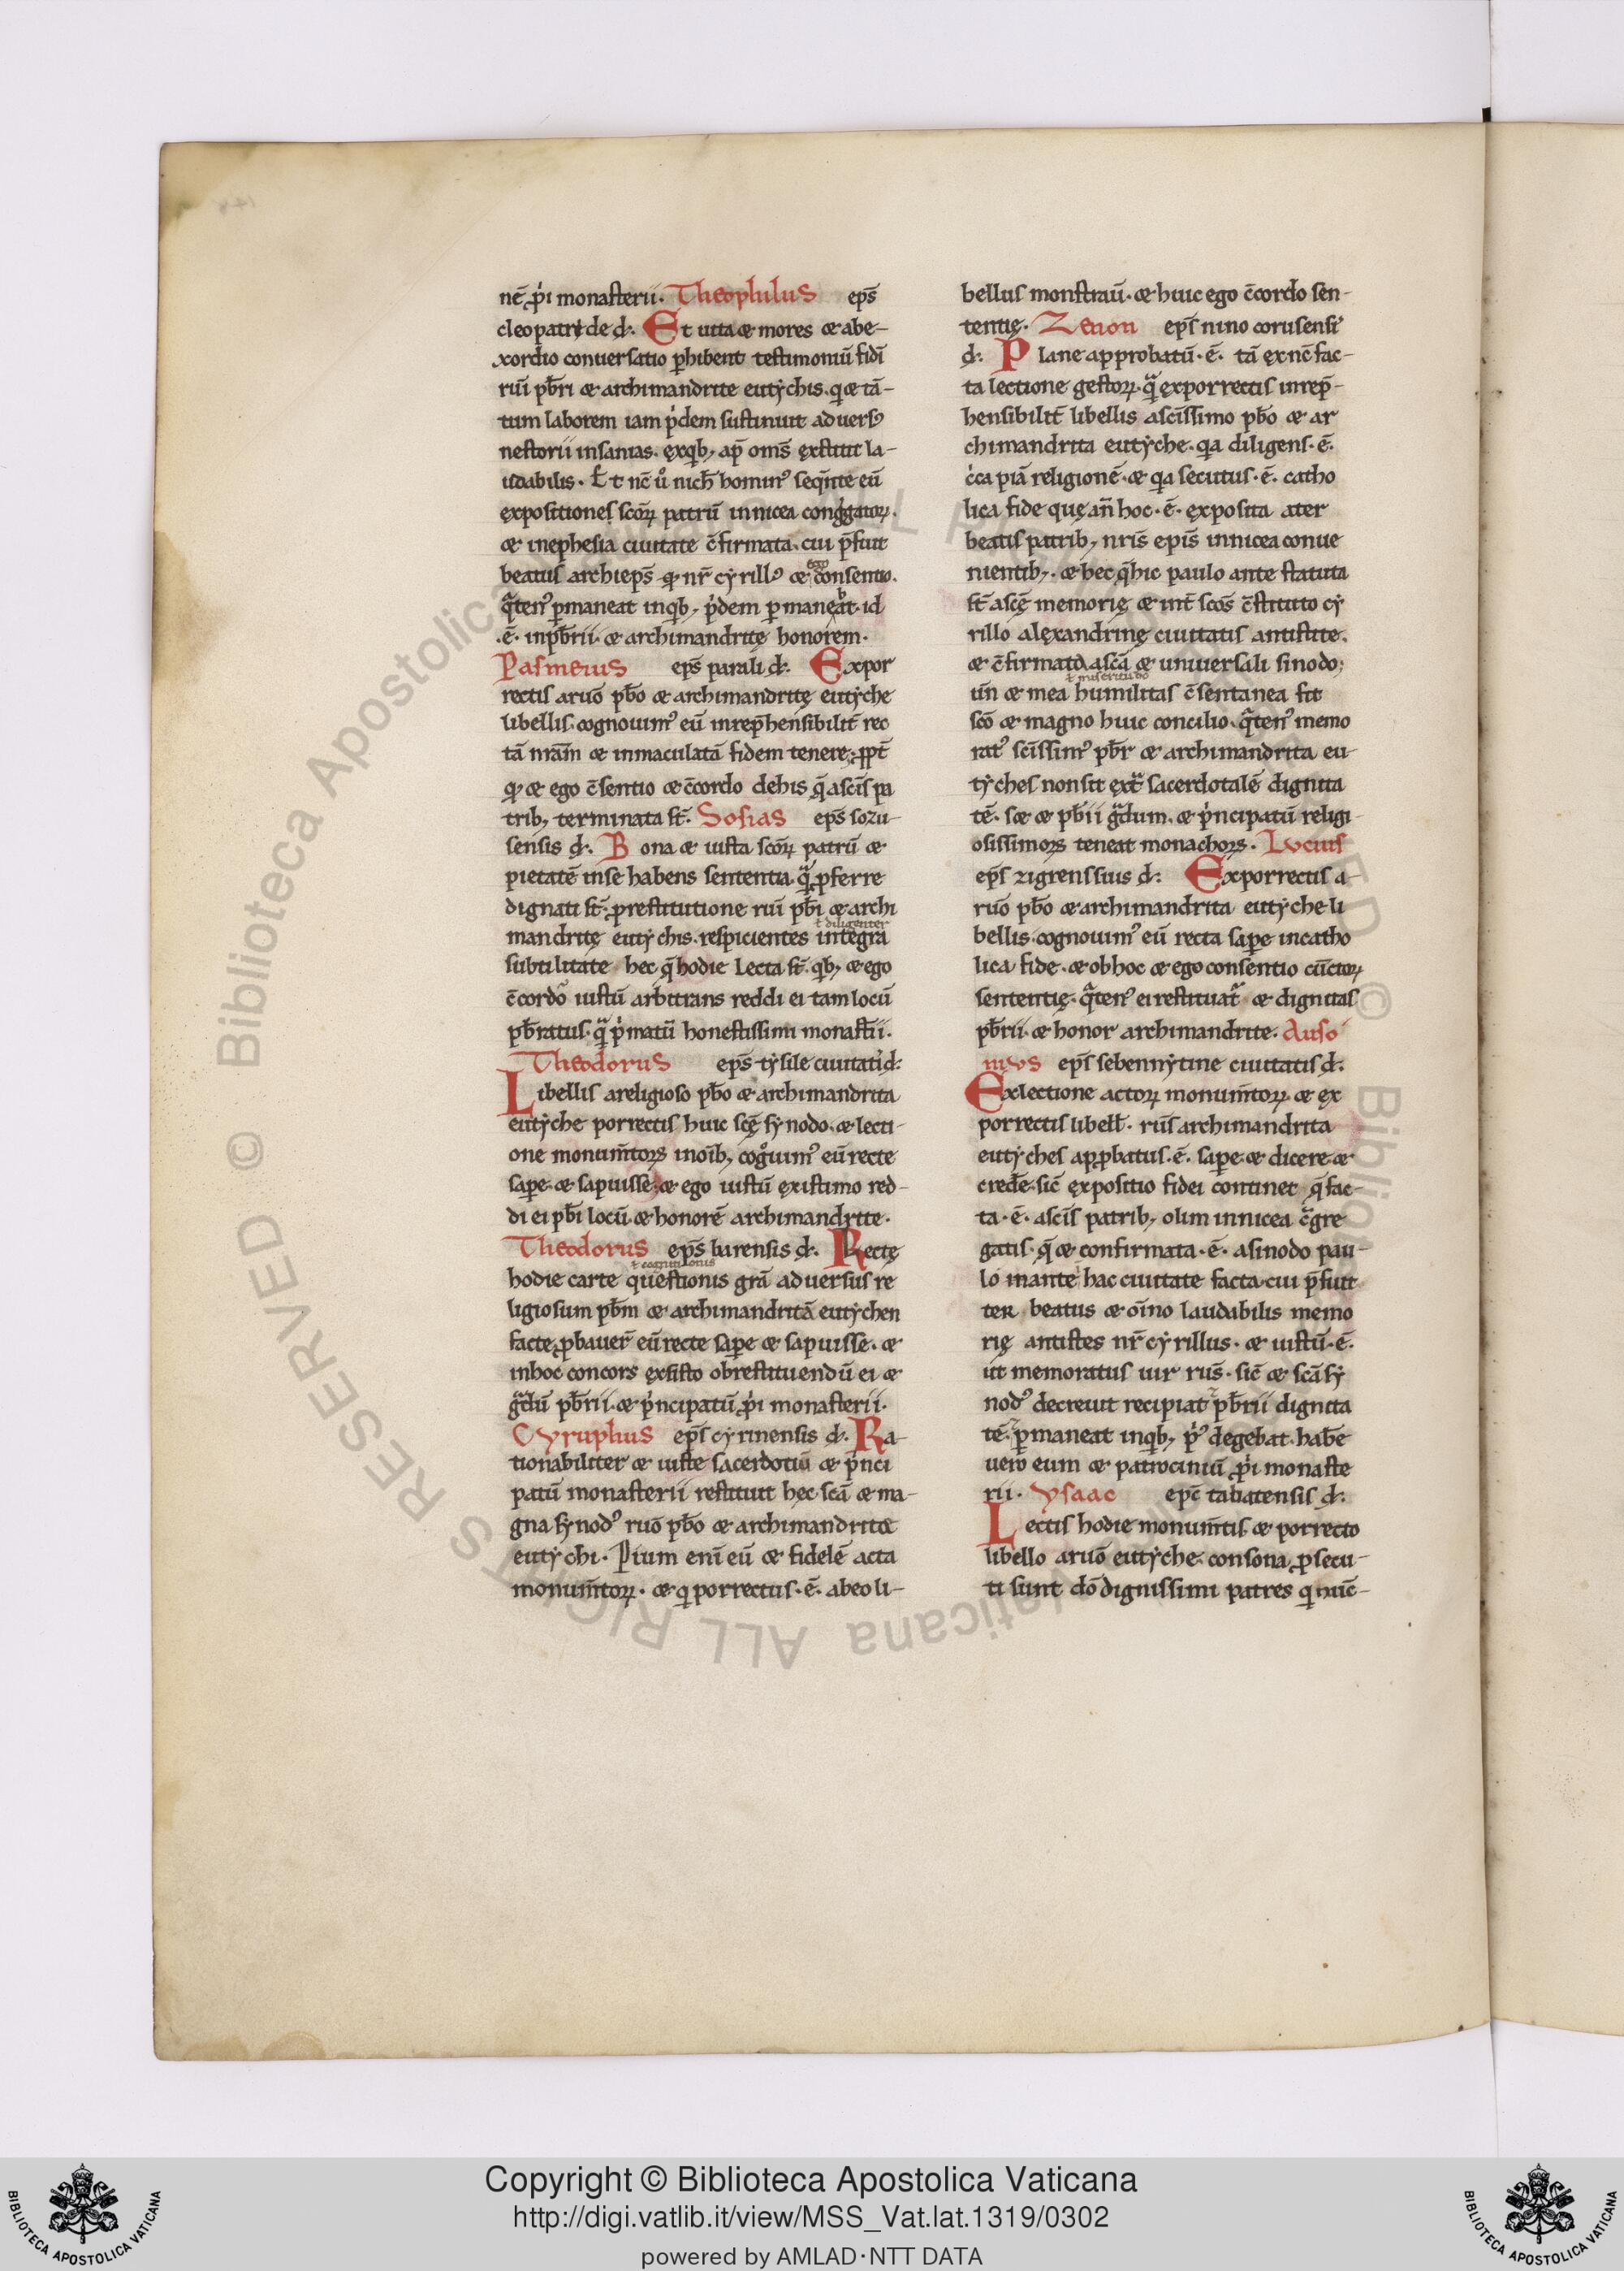 nē p̱i monasterii. Theophilus eps̄
cleopatride d̵. Et uita & mores & abe-
xordio conuersatio phibent testimoniū fidī
riūī pb̄ri & archimandrite eutẏchis. q & tā-
tum laborem iam pͥdem sustinuit aduersꝰ
nestorii insanias. ęxqb; ap̄ om̄s ęxstitit la-
udabilis. Et nē uͦ nich̄ hominꝰ seqn̄te eū
ęxpositiones scōꝝ patrū innicea congͥgatoꝝ.
& inephesia ciuitate c̄firmata. cui p̄fuit
beatus archieps̄ ꝙ nr̄ cẏrillꝰ & ego consentio.
qͣtenꝰ pmaneat inqb; pͥdem pmanebat. id
.ē. inpb̄rii. & archimandritę honorem.
Pasmeius eps̄ parali d̵. Expor
rectis aruō pb̄o & archimandritę eutẏche
libellis. cognouimꝰ eū inrep̄hensibilit̄ rec
tā nrām & inmaculatā fidem tenere; ꝓpt̄
ꝙ & ego c̄sentio & c̄cordo dehis q̄ ascīs pa
trib; terminata st̄. Sosias eps̄ sozu-
sensis d̵. Bona & iusta scōꝝ patrū &
pietatē inse habens sententia. qͣ ꝓferre
dignati st̄. ꝓrestitutione ruī pb̄i & archi
mandritę eutẏchis. respicientes integra
ł diligenter
subtilitate hec q̄ hodie Lecta st̄. qb; & ego
c̄cordo iustū arbitrans reddi ei tam locū
pb̄ratus. qͣ pͥmatū honestissimi monastīi.
Theodorus eps̄ tẏsile ciuitati d̵:
Libellis areligioso pb̄o & archimandrita
eutẏche porrectis huic scę̄ sẏnodo. & lecti-
one monum̄tors inoīb; cogͦuimꝰ eū recte
sapͤe. & sapuisse. & ego iustū ęxistimo red-
di ei pb̄i locū. & honorē archimandrite.
Theodorus eps̄ barensis d̵. Rectę
ł cognitionis
hodie carte questionis grā aduersus re
ligiosum pb̄m & archimandritā eutẏchen
facte ꝓbauer̄ eū recte sapͤe & sapuisse. &
inhoc concors ęxsisto obrestituendū ei &
gͣdū pb̄rii. & pͥncipatū p̱i monasterii.
Cyruphus eps̄ cẏrinensis d̵. Ra-
tionabiliter & iuste sacerdotiū & pͥnci
patū monasterii restituit hęc scā & ma-
gna sẏnodꝰ ruō pb̄o & archimandrite
eutẏchi. Pium enī eū & fidelē acta
monum̄toꝝ. & q porrectus. ē. abeo li-
bellus monstraū. & huic ego c̄cordo sen-
tentię. Zenon eps̄ nino corusensi
d̵. Plane approbatū. ē. tā ęxnē fac-
ta lectione gestoꝝ. qͣ ęxporrectis inrep̄-
hensibilit̄ libellis ascīssimo pb̄o & ar
chimandrita eutẏche. qa diligens. ē.
cͥca piā religionē. & qa secutus. ē. catho
lica fide quę an̄ hoc. ē. ęxposita ater
beatis patrib; nrīs epīs innicea conue
nientib;. & hec q̄ hic paulo ante statuta
st̄ ascę̄ memorię & int̄ scōs c̄stituto cẏ
rillo alęxandrinę ciuitatis antistite.
& c̄firmata ascā & uniuersali sinodo;
ł miseritudo
un̄ & mea humilitas c̄sentanea fit
scō & magno huic concilio. qͣtenꝰ memo
ratꝰ scīssimꝰ pb̄r & archimandrita eu-
tẏches nonsit ęxtͣ sacerdotalē dignita
tē. s& & pb̄ii gͣdum. & pͥncipatū religi-
osissimors teneat monachors. Lvcius
eps̄ zigrenssius d̵: Exporrectis a-
ruō pb̄o & archimandrita eutẏche li
bellis. cognouimꝰ eū recta sapͤe incatho
lica fide. & obhoc & ego consentio cūctoꝝ
sententię. qͣtenꝰ ei restituat̄ & dignitas
pb̄rii. & honor archimandrite. Auso
nivs eps̄ sebennẏtine ciuitatis d̵.
Exlectione actoꝝ monum̄toꝝ. & ex
porrectis libell̄. rūs archimandrita
eutẏches apꝓbatus. ē. sapͤe. & dicere &
crede. sic̄ ęxpositio fidei continet q̄ fac-
ta. ē. ascīs patrib; olim innicea c̄gͥgre
gatis. q̄ & confirmata. ē. asinodo pau-
lo inante hac ciuitate facta. cui p̄fuit
ter beatus & oīno laudabilis memo
rię antistes nr̄ cẏrillus. & iustū. ē.
ut memoratus uir rūs. sic̄ & scā sẏ
nodꝰ decreuit recipiat pb̄rii dignita
tē. pmaneat inqb; pͥꝰ degebat. habe
uero eum & patrociniū p̱i monaste
rii. Ysaac epc̄ tabatensis d̵.
Lectis hodie monum̄tis & porrecto
libello aruō eutẏche. consona ꝓsecu-
ti sunt dō dignissimi patres q nūc-
Copyright © Biblioteca Apostolica Vaticana
http://digi.vatlib.it/view/MSS_Vat.lat.1319/0302
powered by AMLAD·NTT DATA
BIBLIOTECA APOSTOLICA VATICANA
BIBLIOTECA APOSTOLICA VATICANA